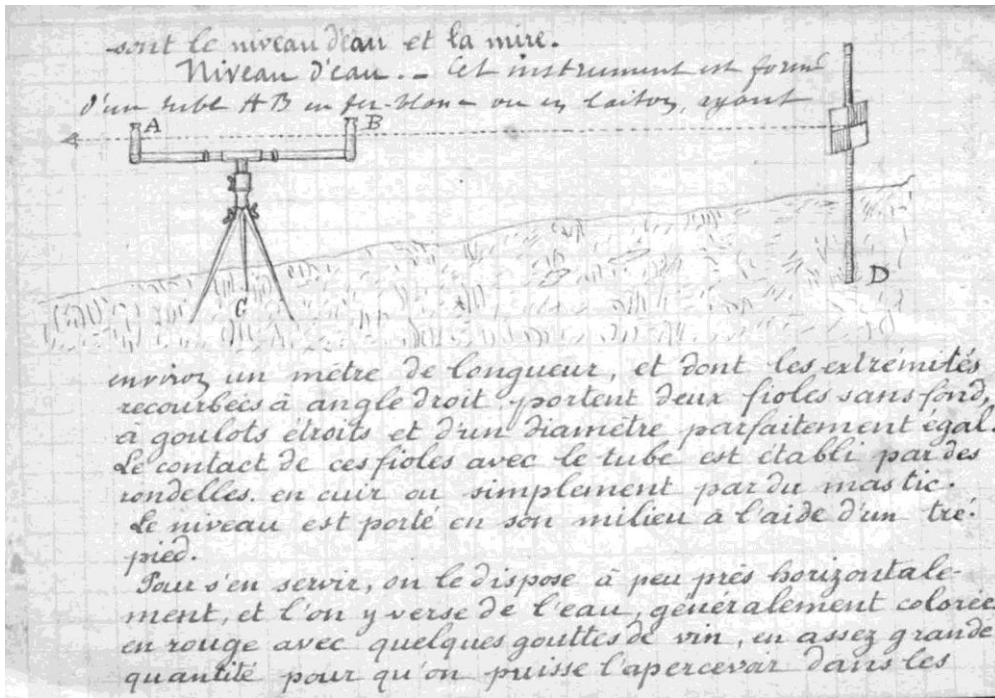 sont le niveau d'eau et la mire.
Niveau d'eau. - Cet instrument est formé
d'un tube AB en fer-blanc ou en laiton, ayant
A
B
C
D
environ un mètre de longueur, et dont les extrémités
recourbées à angle droit, portent deux fioles sans fond,
à goulots étroits et d'un diamètre parfaitement égal.
Le contact de ces fioles avec le tube est établi par des
rondelles. en cuir ou simplement par du mastic.
Le niveau est porté en son milieu à l'aide d'un tré-
pied.
Pour s'en servir, on le dispose à peu près horizontale-
ment, et l'on y verse de l'eau, généralement colorée
en rouge avec quelques gouttes de vin, en assez grande
quantité pour qu'on puisse l'apercevoir dans les